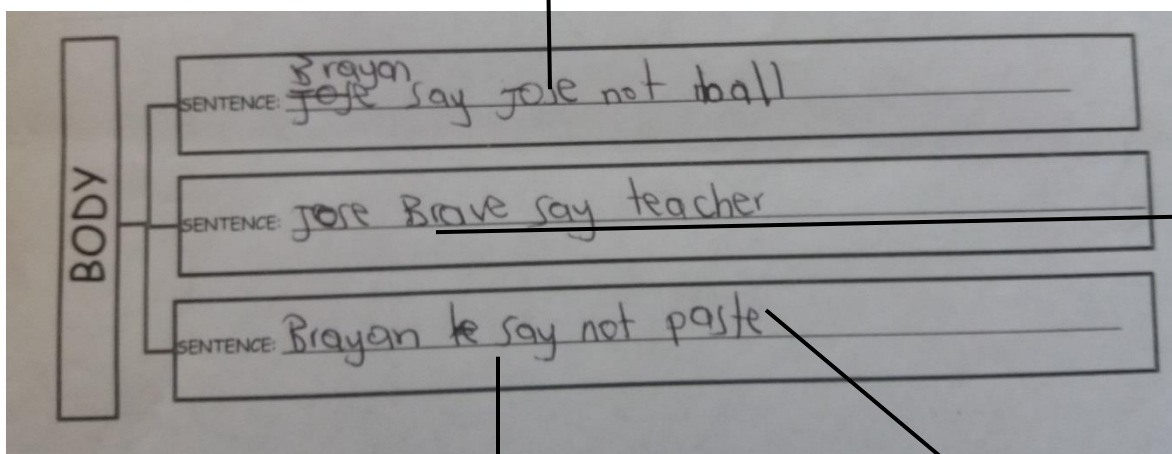 BODY
Brayan
SENTENCE: Jose say Jose not ball
SENTENCE: Jose Brave say teacher
SENTENCE: Brayan te say not paste